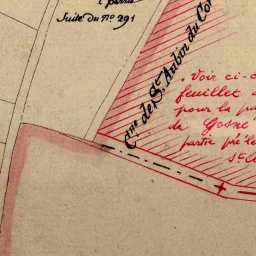 Suite du N° 291
Cne de St Aubin du Cor
Voir ci-c
feuillet
pour la pa
de Gosne
partie pré le
St A